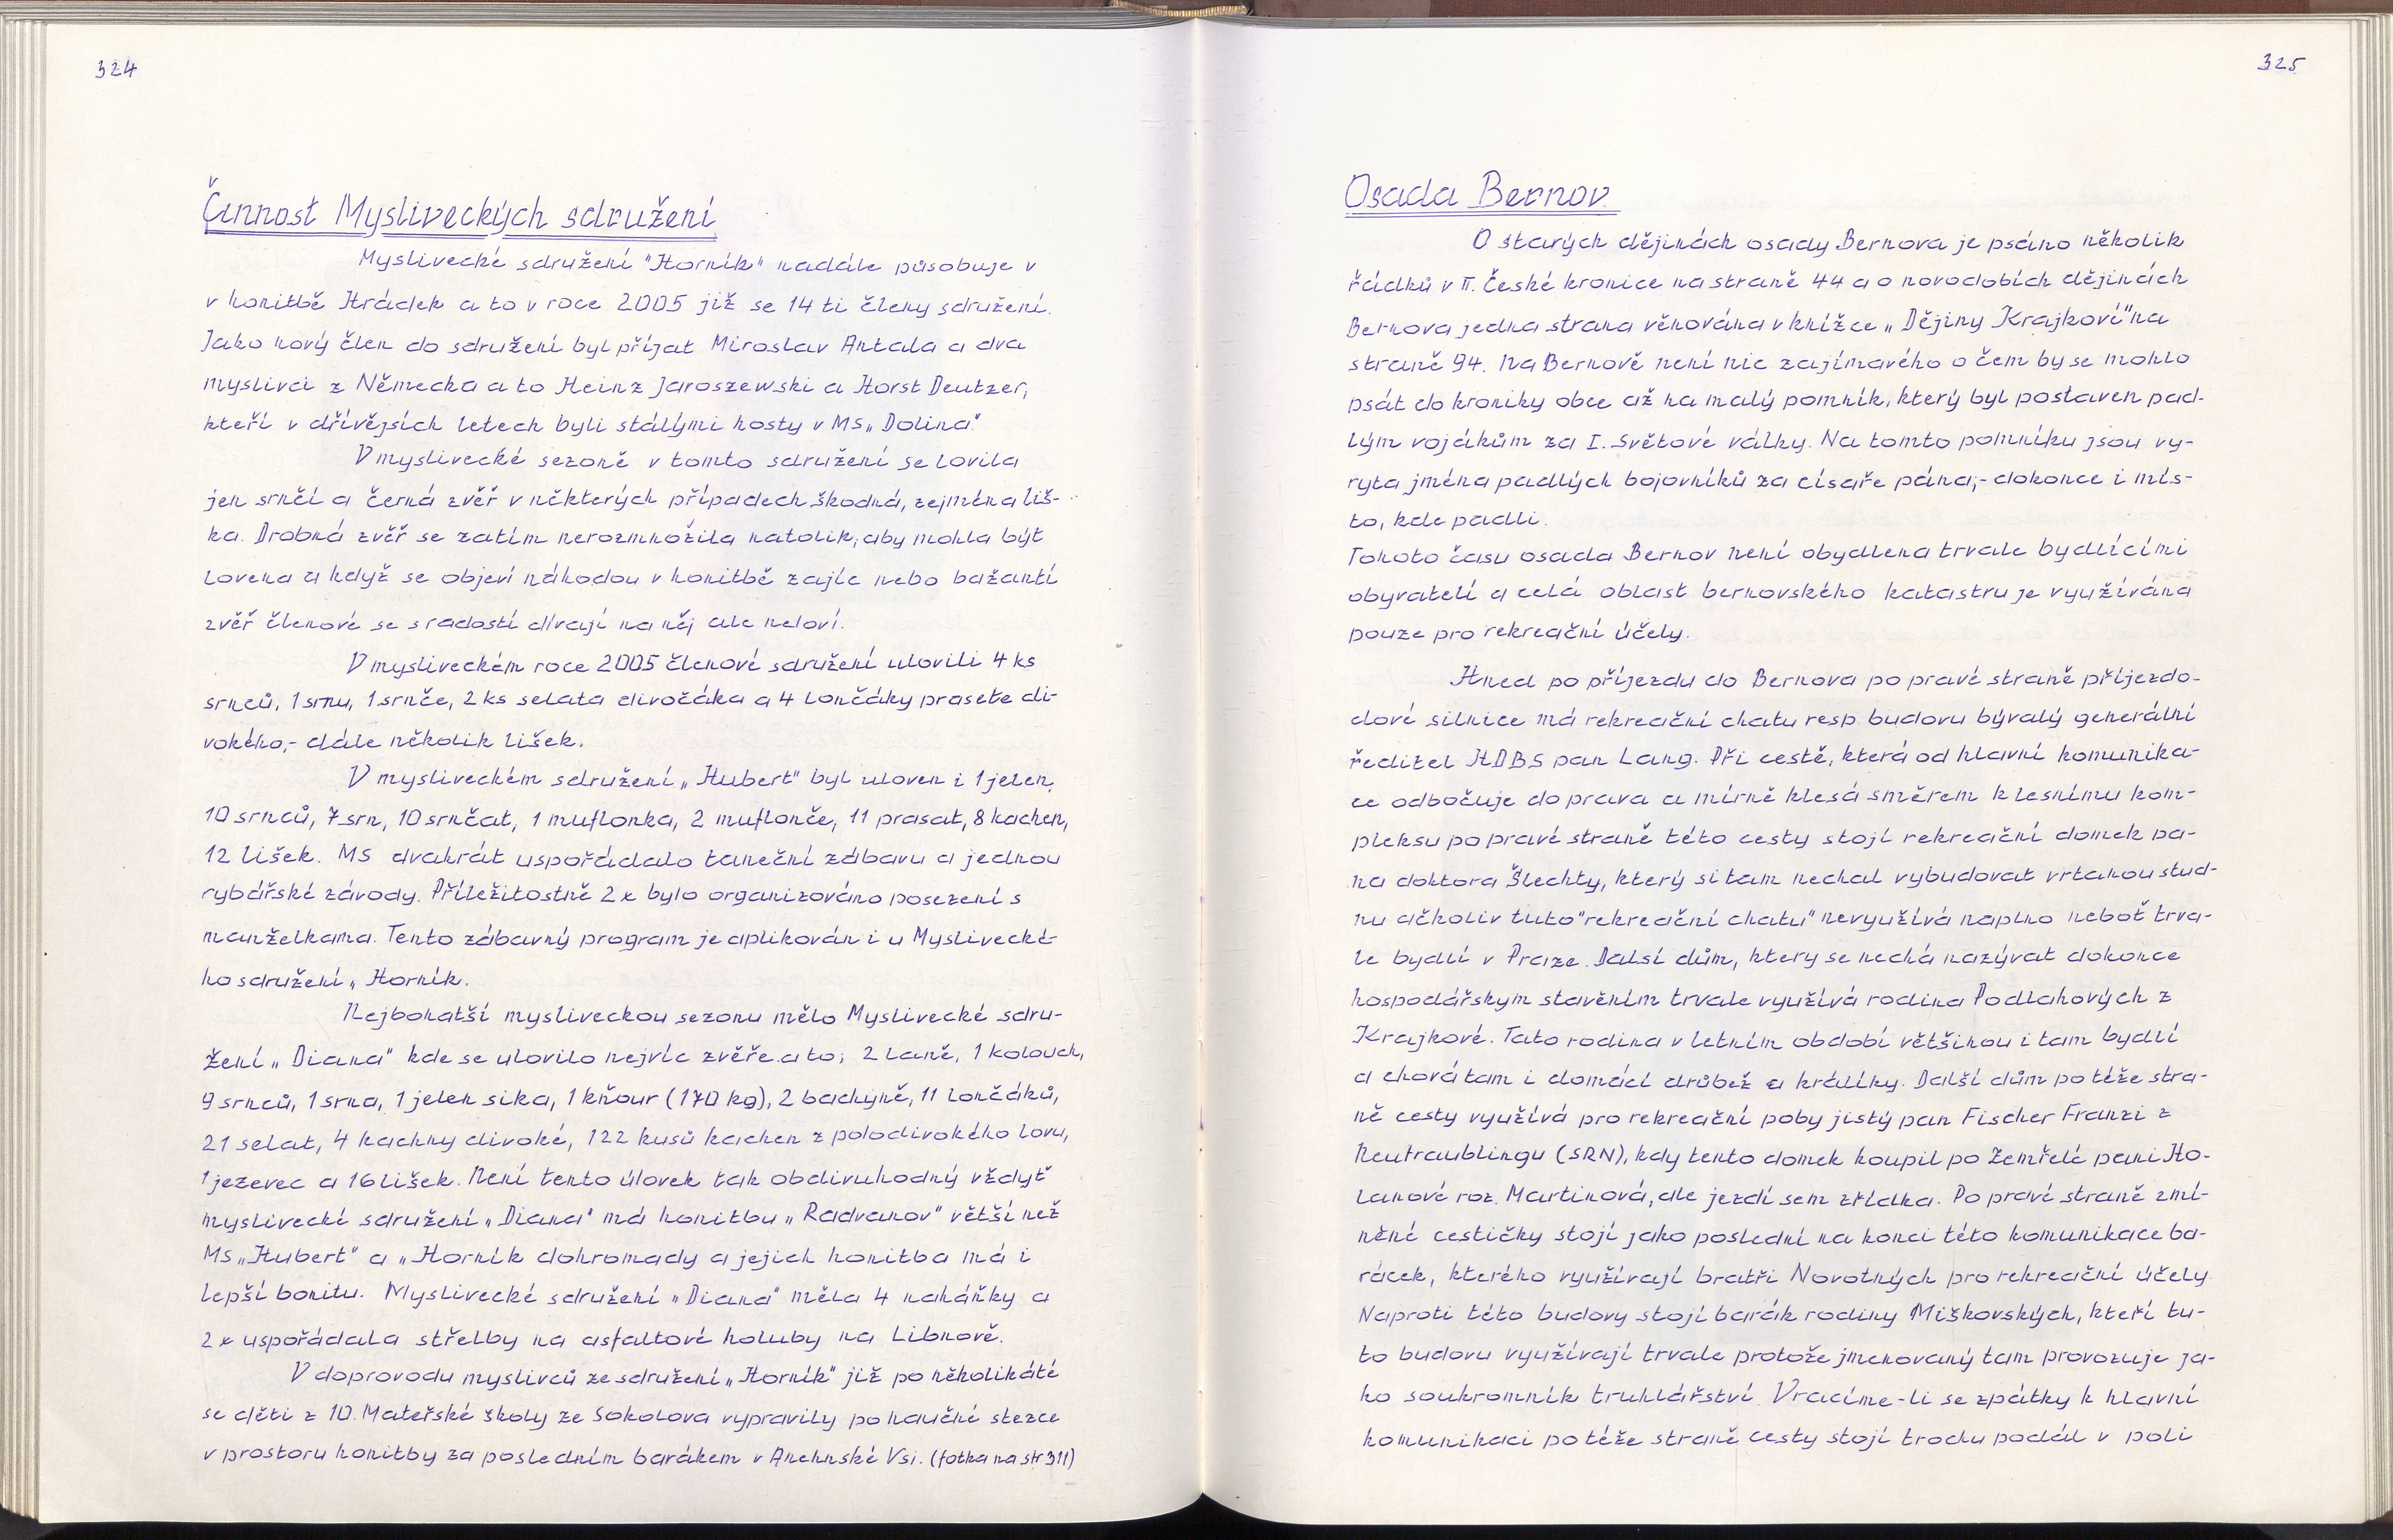 324
Činnost Mysliveckých sdružení
Myslivecké sdružení "Horník" nadále působuje v
v honitbě Hrádek a to v roce 2005 již se 14 ti členy sdružení.
Jako nový člen do sdružení byl přijat Miroslav Antala a dva
myslivci z Německa a to Heinz Jaroszewski a Horst Deutzer,
kteří v dřívějsích letech byli stálými hosty v MS „Dolina."
V myslivecké sezoně v tomto sdružení se lovila
jen srnčí a černá zvěř v některých případech škodná, zejména liš-
ka. Drobná zvěř se zatím nerozmnožila natolik, aby mohla být
lovena a když se objeví náhodou v honitbě zajíc nebo bažantí
zvěř členové se s radostí dívají na něj ale neloví.
V mysliveckém roce 2005 členové sdružení ulovili 4 ks
srnců, 1 srnu, 1 srnče, 2 ks selata divočáka a 4 lončáky prasete di-
vokého,- dále několik lišek.
V mysliveckém sdružení „Hubert" byl uloven i 1 jelen,
10 srnců, 7 srn, 10 srnčat, 1 muflonka, 2 muflonče, 11 prasat, 8 kachen,
12 lišek. MS dvakrát uspořádalo taneční zábavu a jednou
rybářské závody. Příležitostně 2x bylo organizováno posezení s
manželkama. Tento zábavný program je aplikován i u Myslivecké-
ho sdružení „Horník.
Nejbohatší mysliveckou sezonu mělo Myslivecké sdru-
žení „Diana" kde se ulovilo nejvíc zvěře a to; 2 laně, 1 kolouch,
9 srnců, 1 srna, 1 jelen sika, 1 kňour (170 kg), 2 bachyně, 11 lončáků,
21 selat, 4 kachny divoké, 122 kusů kachen z polodivokého lovu,
1 jezevec a 16 lišek. Není tento úlovek tak obdivuhodný vždyť
myslivecké sdružení „Diana" má honitbu „Radvanov" větší než
MS „Hubert" a „Horník dohromady a jejich honitba má i
lepší bonitu. Myslivecké sdružení „Diana" měla 4 naháňky a
2x uspořádala střelby na asfaltové holuby na Libnově.
V doprovodu myslivců ze sdružení „Horník" již po několikáté
se děti z 10. Mateřské školy ze Sokolova vypravily po naučné stezce
v prostoru honitby za posledním barákem v Anenské Vsi. (fotka na str 311)
325
Osada Bernov.
O starých dějinách osady Bernova je psáno několik
řádků v II. České kronice na straně 44 a o novodobích dějinách
Bernova jedna strana věnována v knížce „Dějiny Krajkoví" na
straně 94. Na Bernově není nic zajímavého o čem by se mohlo
psát do kroniky obce až na malý pomník, který byl postaven pad-
lým vojákům za I. Světové války. Na tomto pomníku jsou vy-
ryta jména padlých bojovníků za císaře pána,- dokonce i mís-
to, kde padli.
Tohoto času osada Bernov není obydlena trvale bydlícími
obyvatelí a celá oblast bernovského katastru je využívána
pouze pro rekreační účely.
Hned po příjezdu do Bernova po pravé straně příjezdo-
dové silnice má rekreační chatu resp. budovu bývalý generální
ředitel HDBS pan Lang. Při cestě, která od hlavní komunika-
ce odbočuje do prava a mírně klesá směrem k lesnímu kom-
pleksu po pravé straně této cesty stojí rekreační domek pa-
na doktora Šlechty, který si tam nechal vybudovat vrtanou stud-
nu ačkoliv tuto "rekreační chatu" nevyužívá naplno neboť trva-
le bydlí v Praze. Dalsí dům, ktery se nechá nazývat dokonce
hospodářskym stavěním trvale využívá rodina Podlahových z
Krajkové. Tato rodina v letním období většinou i tam bydlí
a chová tam i domácí drůbež a králíky. Další dům po téže stra-
ně cesty využívá pro rekreační poby jistý pan Fischer Franzi z
Neutraublingu (SRN), kdy tento domek koupil po Zemřelé pani Ho-
lanové roz. Martinová, ale jezdí sem zřídka. Po pravé straně zmí-
něné cestičky stojí jako poslední na konci této komunikace ba-
ráček, kterého využívají bratři Novotných pro rekreační účely.
Naproti této budovy stojí barák rodiny Miškovských, kteří tu-
to budovu využívají trvale protože jmenovaný tam provozuje ja-
ko soukromník truhlářství. Vracíme-li se zpátky k hlavní
komunikaci po téže straně cesty stojí trochu podál v poli